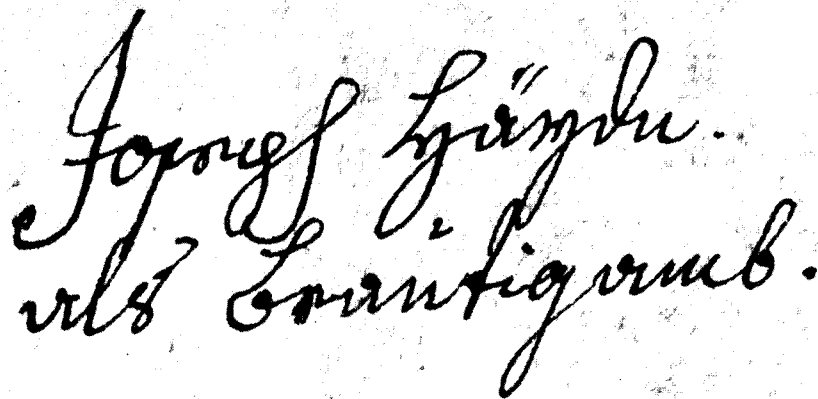 Joseph Häydn.
als Bräutigamb.